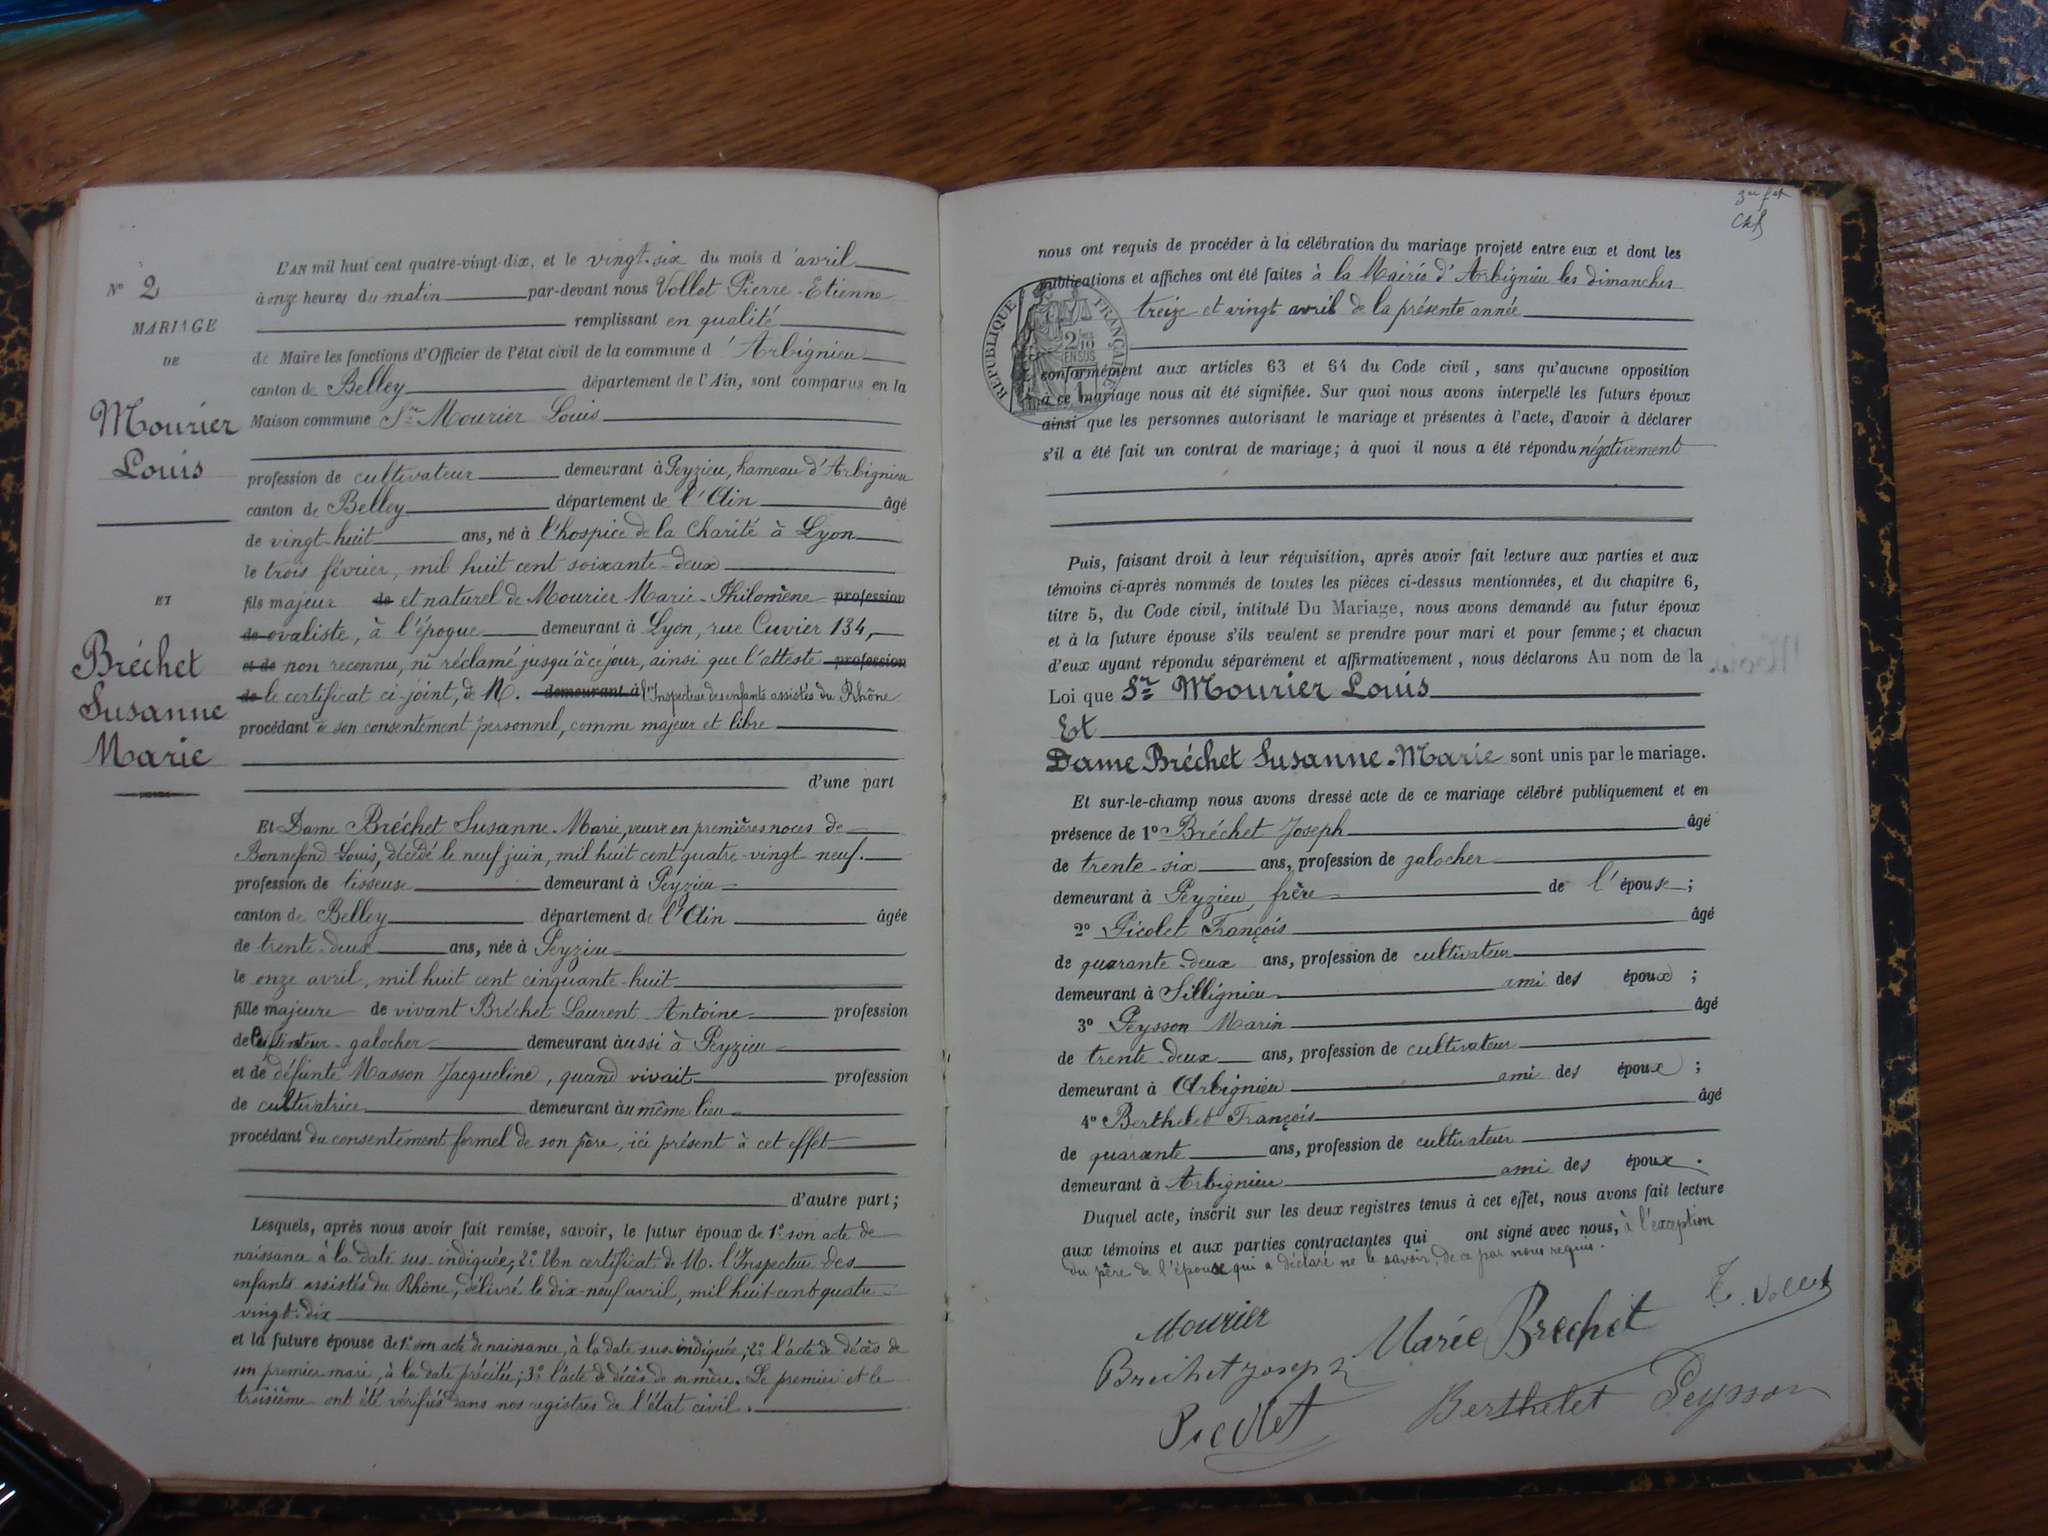 N° 2
MARIAGE
DE
Mourier
Louis
ET
Bréchet
Susanne
Marie
L'AN mil huit cent quatre-vingt-dix, et le vingt-six du mois d'avril
à onze heures du matin par-devant nous Vollet Pierre-Etienne
remplissant en qualité
de Maire les fonctions d'Officier de l'état civil de la commune d'Arbignieu
canton de Belley département de l'Ain, sont comparus en la
Maison commune Sr Mourier Louis
profession de cultivateur demeurant à Peyzieu, hameau d'Arbignieu
canton de Belley département de l'Ain âgé
de vingt-huit ans, né à l'hospice de la Charité à Lyon
le trois février, mil huit cent soixante-deux
fils majeur de et naturel de Mourier Marie-Philomène profession
de ovaliste, à l'époque demeurant à Lyon, rue Cuvier 134,
et de non reconnu, ni réclamé jusqu'à ce jour, ainsi que l'atteste profession
de le certificat ci-joint, de M. demeurant à l'Inspecteur des enfants assistés du Rhône
procédant de son consentement personnel, comme majeur et libre
d'une part
Et Dame Bréchet Susanne-Marie, veuve en premières noces de
Bonnefond Louis, décédé le neuf juin, mil huit cent quatre-vingt-neuf.
profession de tisseuse demeurant à Peyzieu
canton de Belley département de l'Ain âgée
de trente-deux ans, née à Peyzieu
le onze avril, mil huit cent cinquante-huit
fille majeure de vivant Bréchet Laurent-Antoine profession
de galocher demeurant aussi à Peyzieu
et de défunte Masson Jacqueline, quand vivait profession
de cultivatrice demeurant au même lieu
procédant du consentement formel de son père, ici présent à cet effet
d'autre part;
Lesquels, après nous avoir fait remise, savoir, le futur époux de 1° son acte de
naissance à la date sus-indiquée; 2° Un certificat de M. l'Inspecteur des
enfants assistés du Rhône, délivré le dix-neuf avril, mil huit-cent-quatre-
vingt-dix
et la future épouse de 1° son acte de naissance, à la date sus-indiquée; 2° l'acte de décès de
son premier mari, à la date précitée; 3° l'acte de décès de sa mère. Le premier et le
troisième ont été vérifiés dans nos registres de l'état civil.
nous ont requis de procéder à la célébration du mariage projeté entre eux et dont les
publications et affiches ont été faites à la Mairie d'Arbignieu les dimanches
treize et vingt avril de la présente année
RÉPUBLIQUE FRANÇAISE
2/10 EN SUS
conformément aux articles 63 et 64 du Code civil, sans qu'aucune opposition
à ce mariage nous ait été signifiée. Sur quoi nous avons interpellé les futurs époux
ainsi que les personnes autorisant le mariage et présentes à l'acte, d'avoir à déclarer
s'il a été fait un contrat de mariage; à quoi il nous a été répondu négativement
Puis, faisant droit à leur réquisition, après avoir fait lecture aux parties et aux
témoins ci-après nommés de toutes les pièces ci-dessus mentionnées, et du chapitre 6,
titre 5, du Code civil, intitulé Du Mariage, nous avons demandé au futur époux
et à la future épouse s'ils veulent se prendre pour mari et pour femme; et chacun
d'eux ayant répondu séparément et affirmativement, nous déclarons Au nom de la
Loi que Sr Mourier Louis
Et
Dame Bréchet Susanne-Marie sont unis par le mariage.
Et sur-le-champ nous avons dressé acte de ce mariage célébré publiquement et en
présence de 1° Bréchet Joseph âgé
de trente-six ans, profession de galocher
demeurant à Peyzieu, frère de l'épouse;
2° Picolet François âgé
de quarante-deux ans, profession de cultivateur
demeurant à Sillignieu ami des époux;
3° Peysson Marin âgé
de trente-deux ans, profession de cultivateur
demeurant à Arbignieu ami des époux;
4° Berthelet François âgé
de quarante ans, profession de cultivateur
demeurant à Arbignieu ami des époux.
Duquel acte, inscrit sur les deux registres tenus à cet effet, nous avons fait lecture
aux témoins et aux parties contractantes qui ont signé avec nous, à l'exception
du père de l'épouse qui a déclaré ne le savoir, de ce par nous requis.
Mourier Marie Brechet E. Vollet
Brechet joseph
Picolet Berthelet Peysson